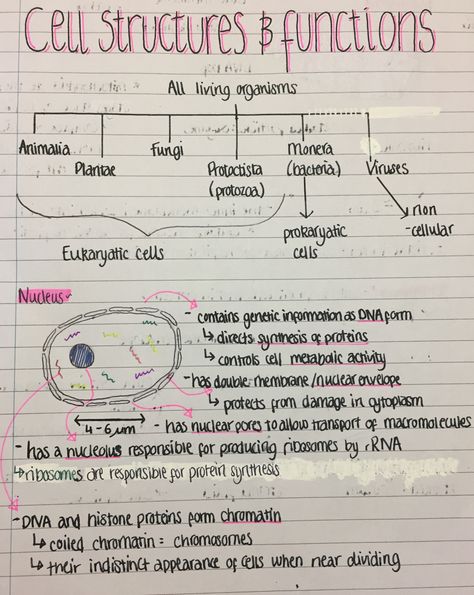 Cell Structures & functions
All living organisms
Animalia
Plantae
Fungi
Protoctista
(protozoa)
Monera
(bacteria)
Viruses
Eukaryatic cells
prokaryatic
cells
non
-cellular
Nucleus
- contains genetic information as DNA form
↳ directs synthesis of proteins
↳ controls cell metabolic activity
- has double membrane/nuclear envelope
↳ protects from damage in cytoplasm
4-6µm
- has nuclear pores to allow transport of macromolecules
- has a nucleolus responsible for producing ribosomes by rRNA
↳ ribosomes are responsible for protein synthesis
- DNA and histone proteins form chromatin
↳ coiled chromatin = chromosomes
↳ their indistinct appearance of cells when near dividing